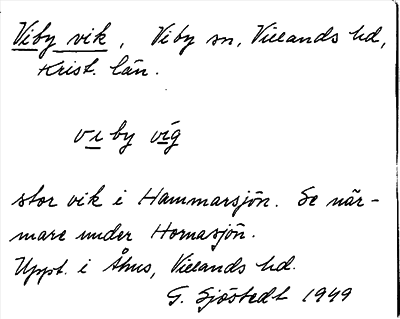 Viby vik, Viby sn, Villands hd,
Krist. län.
vi by víg
stor vik i Hammarsjön. Se när-
mare under Hornasjön.
Uppt. i Åhus, Villands hd.
G. Sjöstedt 1949